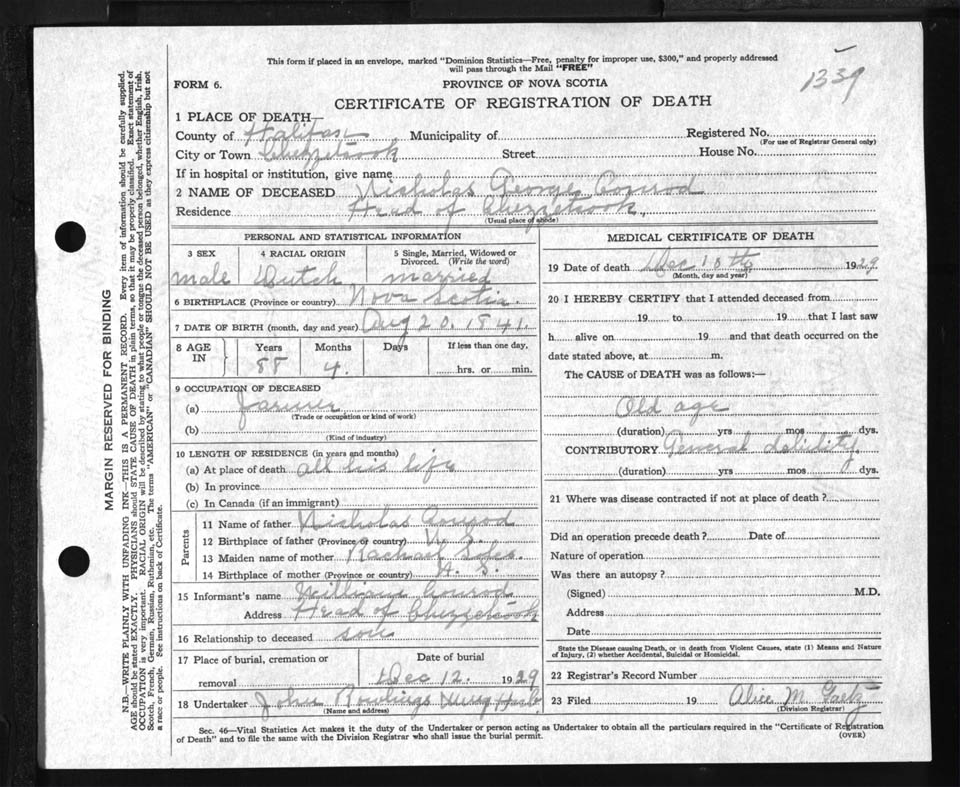 This form if placed in an envelope, marked "Dominion Statistics—Free, penalty for improper use, $300," and properly addressed
will pass through the Mail "FREE"
1339
FORM 6.
PROVINCE OF NOVA SCOTIA
CERTIFICATE OF REGISTRATION OF DEATH
1 PLACE OF DEATH—
County of Halifax Municipality of Registered No.
(For use of Registrar General only)
City or Town Chezzetcook Street House No.
If in hospital or institution, give name
2 NAME OF DECEASED Nicholas George Conrod
Residence Head of Chezzetcook,
(Usual place of abode)
PERSONAL AND STATISTICAL INFORMATION
3 SEX 4 RACIAL ORIGIN 5 Single, Married, Widowed or
Divorced. (Write the word)
male Dutch married
6 BIRTHPLACE (Province or country) Nova Scotia.
7 DATE OF BIRTH (month, day and year) Aug 20. 1841.
8 AGE IN Years Months Days If less than one day,
88 4. hrs. or min.
9 OCCUPATION OF DECEASED
(a) Farmer
(Trade or occupation or kind of work)
(b)
(Kind of industry)
10 LENGTH OF RESIDENCE (in years and months)
(a) At place of death all his life
(b) In province
(c) In Canada (if an immigrant)
Parents
11 Name of father Nicholas Conrod
12 Birthplace of father (Province or country) N. S.
13 Maiden name of mother Rachael
14 Birthplace of mother (Province or country) N. S.
15 Informant's name William Conrod
Address Head of Chezzetcook
16 Relationship to deceased son
17 Place of burial, cremation or Date of burial
removal Dec 12. 1929
18 Undertaker John Rowlings
(Name and address)
MEDICAL CERTIFICATE OF DEATH
19 Date of death Dec 10th 1929.
(Month, day and year)
20 I HEREBY CERTIFY that I attended deceased from
19 to 19 that I last saw
h alive on 19 and that death occurred on the
date stated above, at m.
The CAUSE of DEATH was as follows:—
Old age
(duration) yrs mos dys.
CONTRIBUTORY General debility.
(duration) yrs mos dys.
21 Where was disease contracted if not at place of death?
Did an operation precede death? Date of
Nature of operation
Was there an autopsy?
(Signed) M.D.
Address
Date
State the Disease causing Death, or in death from Violent Causes, state (1) Means and Nature
of Injury, (2) whether Accidental, Suicidal or Homicidal.
22 Registrar's Record Number
23 Filed 19 Alice M. Gaetz
(Division Registrar)
Sec. 46—Vital Statistics Act makes it the duty of the Undertaker or person acting as Undertaker to obtain all the particulars required in the "Certificate of Registration
of Death" and to file the same with the Division Registrar who shall issue the burial permit.
(OVER)
MARGIN RESERVED FOR BINDING
N.B.—WRITE PLAINLY WITH UNFADING INK—THIS IS A PERMANENT RECORD. Every item of information should be carefully supplied.
AGE should be stated EXACTLY. PHYSICIANS should STATE CAUSE OF DEATH in plain terms, so that it may be properly classified. Exact statement of
OCCUPATION is very important. RACIAL ORIGIN will be described by stating to what people or tongue the deceased person belonged, whether English, Irish,
Scotch, French, German, Russian, Ruthenian, etc. The terms "AMERICAN" or "CANADIAN" SHOULD NOT BE USED as they express citizenship but not
a race or people. See instructions on back of Certificate.